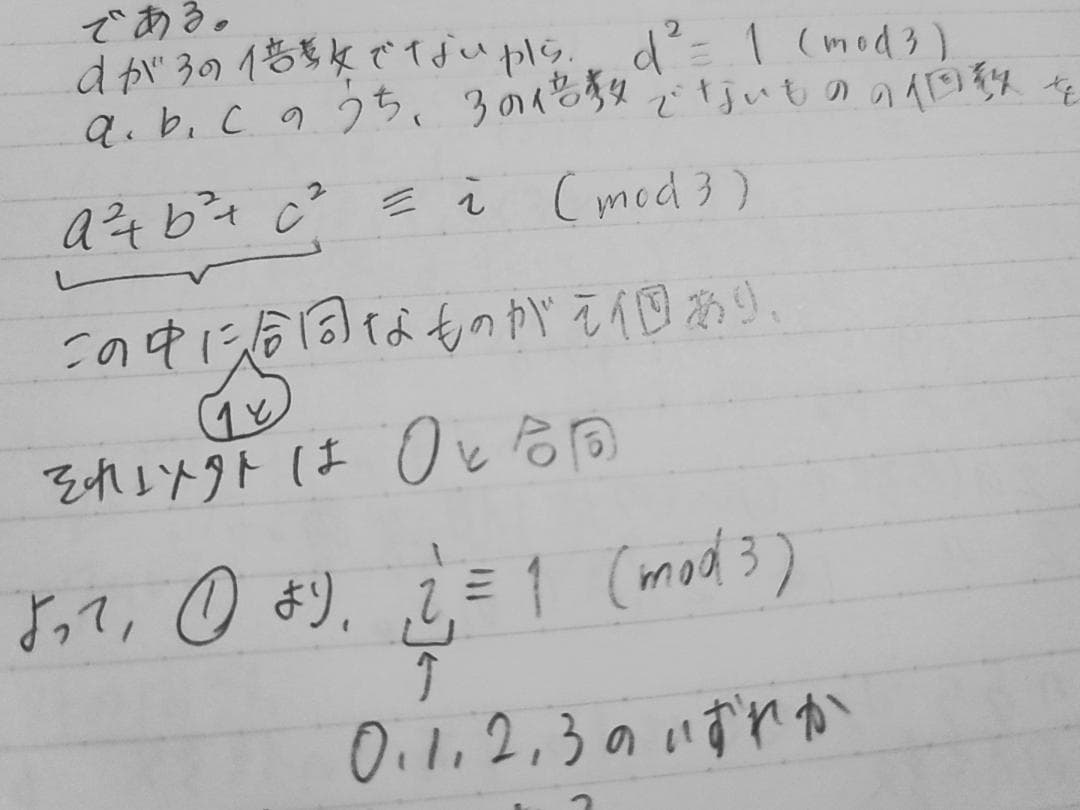 である。
dが3の倍数でないから、d² ≡ 1 (mod3)
a, b, cのうち、3の倍数でないものの個数を
a²+b²+c² ≡ i (mod3)
この中に合同なものがi個あり、
1と
それ以外は0と合同
よって、①より、i ≡ 1 (mod3)
↑
0, 1, 2, 3のいずれか